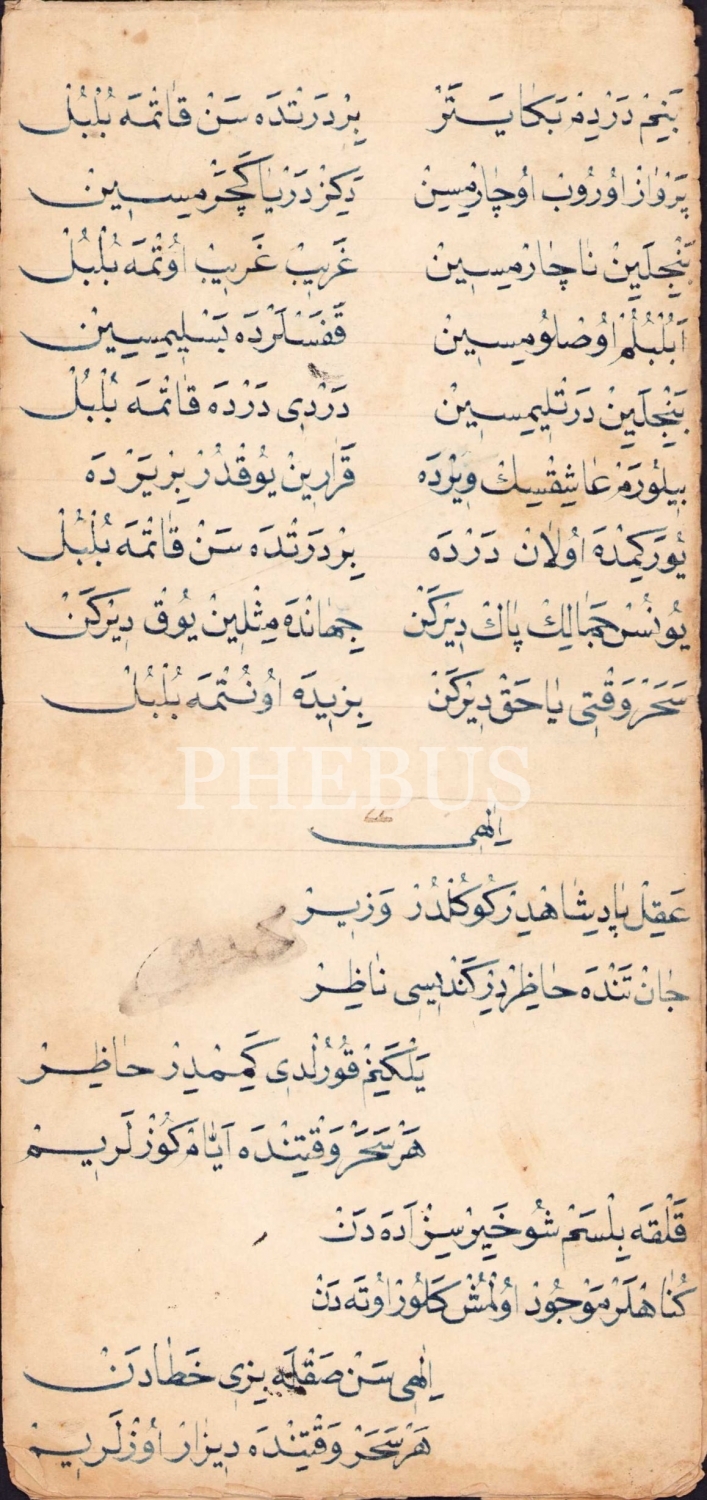 بَنِمْ دَرْدِمْ بَكَا يَتَرْ بِرْ دَرَتْدَه سَنْ قَاتْمَه بُلْبُلْ
پَرْوَازْ اوُرُوبْ اوُچَارْمِسِنْ دَكِزْ دَرْيَا كَچَرْمِسِينْ
بَنْجِلَيِنْ نَاچَارْمِسِينْ غَرِيبْ غَرِيبْ اوُتْمَه بُلْبُلْ
اَبُلْبُلُمْ اوُصْلُومِسِينْ قَفَسْلَرْدَه بَسْلِيمِسِينْ
بَنْجِلَيِنْ دَرْتْلِيمِسِينْ دَرْدِى دَرْدَه قَاتْمَه بُلْبُلْ
بِيلُورَمْ عَاشِقْسِكْ وِيَرْدَه قَرَارِينْ يُوقْدُرْ بِرْ يَرْدَه
يُورَكِمْدَه اوُلَانْ دَرْدَه بِرْ دَرَتْدَه سَنْ قَاتْمَه بُلْبُلْ
يُونُسْ جَمَالِكْ پَاكْ دِيرْكَنْ جِهَانْدَه مِثْلِينْ يُوقْ دِيرْكَنْ
سَحَرْ وَقْتِى يَا حَقْ دِيرْكَنْ بِزِيدَه اوُنُتْمَه بُلْبُلْ
PHEBUS
اِلٰهِى
عَقِلْ پَادِيشَاهْدِرْ كُوكُلْدُرْ وَزِيرْ
جَانْ تَنْدَه حَاظِرْدِرْ كَنْدِيسِى نَاظِرْ
يَلْكَنِمْ قُورُلْدِى كَمِمْدِرْ حَاظِرْ
هَرْ سَحَرْ وَقْتِنْدَه آيَّامْ كَوُزْلَرِيمْ
قَلْقَه بِلْسَمْ شُو خَيِرْسِزْ آدَه دَنْ
كُنَاهْلَرْ مَوْجُودْ اوُلْمُشْ كَلُورْ اوُتَه دَنْ
اِلٰهِى سَنْ صَقْلَه بِزِى خَطَادَنْ
هَرْ سَحَرْ وَقْتِنْدَه دِيزَارْ اوُزْلَرِيمْ